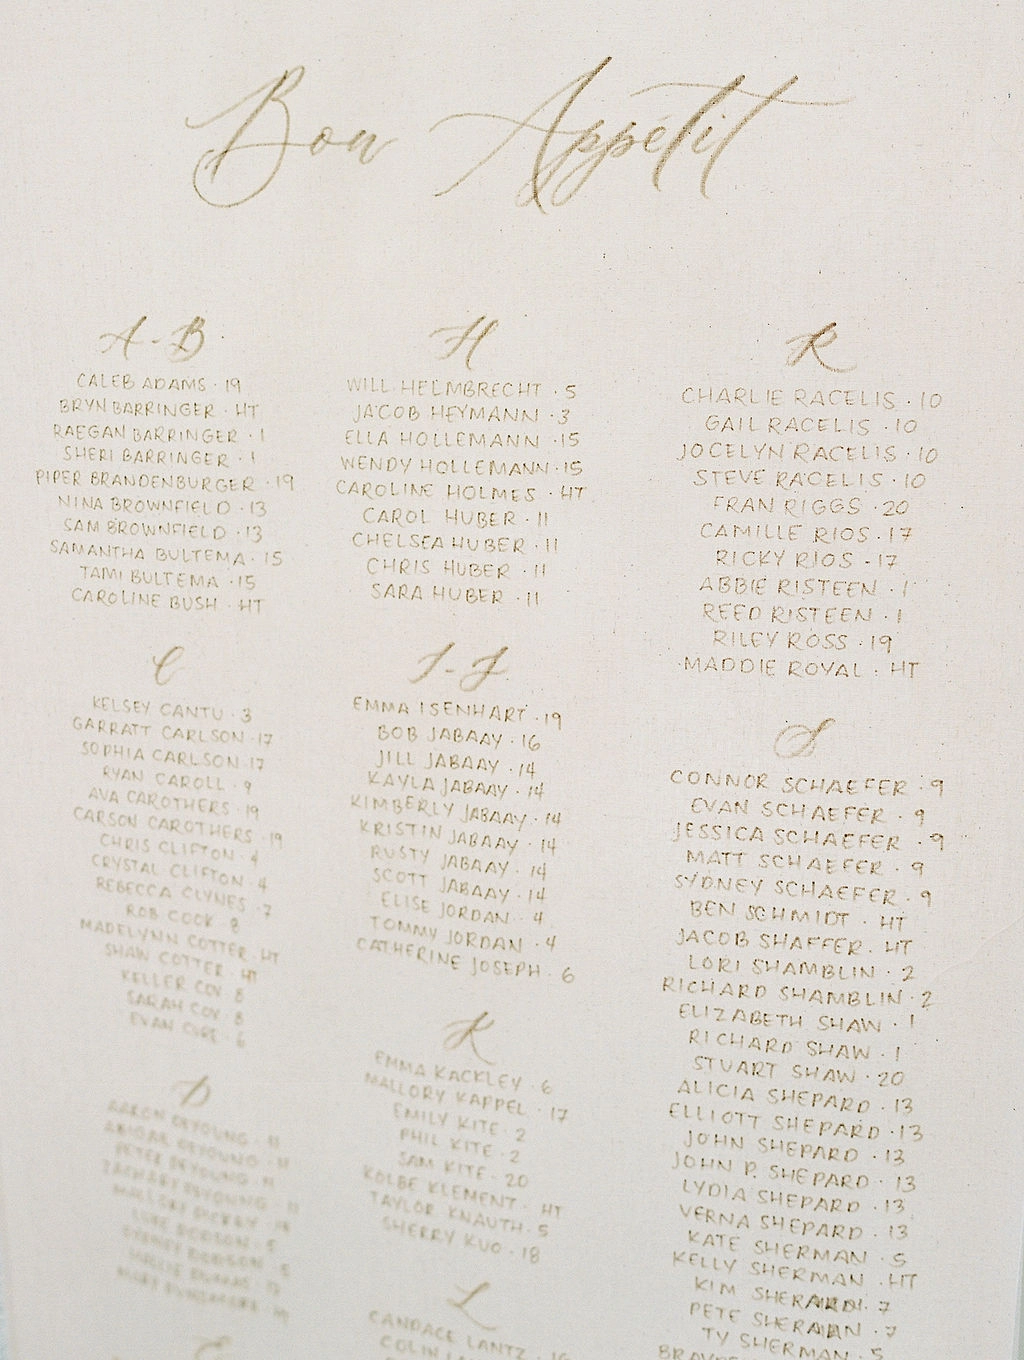 Bon Appétit
A-B
CALEB ADAMS · 19
BRYN BARRINGER · HT
RAEGAN BARRINGER · 1
SHERI BARRINGER · 1
PIPER BRANDENBURGER · 19
NINA BROWNFIELD · 13
SAM BROWNFIELD · 13
SAMANTHA BULTEMA · 15
TAMI BULTEMA · 15
CAROLINE BUSH · HT
C
KELSEY CANTU · 3
GARRATT CARLSON · 17
SOPHIA CARLSON · 17
RYAN CAROLL · 9
AVA CAROTHERS · 19
CARSON CAROTHERS · 19
CHRIS CLIFTON · 4
CRYSTAL CLIFTON · 4
REBECCA CLYNES · 7
ROB COOK · 8
MADELYNN COTTER · HT
SHAW COTTER · HT
KELLER COX · 8
SARAH COX · 8
EVAN
D
AARON DEYOUNG · 11
ABIGAIL DEYOUNG · 11
PETER DEYOUNG · 11
ZACHARY DEYOUNG · 11
H
WILL HELMBRECHT · 5
JACOB HEYMANN · 3
ELLA HOLLEMANN · 15
WENDY HOLLEMANN · 15
CAROLINE HOLMES · HT
CAROL HUBER · 11
CHELSEA HUBER · 11
CHRIS HUBER · 11
SARA HUBER · 11
I-J
EMMA ISENHART · 19
BOB JABAAY · 16
JILL JABAAY · 14
KAYLA JABAAY · 14
KIMBERLY JABAAY · 14
KRISTIN JABAAY · 14
RUSTY JABAAY · 14
SCOTT JABAAY · 14
ELISE JORDAN · 4
TOMMY JORDAN · 4
CATHERINE JOSEPH · 6
K
EMMA KACKLEY · 6
MALLORY KAPPEL · 17
EMILY KITE · 2
PHIL KITE · 2
SAM KITE · 20
KOLBE KLEMENT · HT
TAYLOR KNAUTH · 5
SHERRY KUO · 18
L
CANDACE LANTZ
COLIN
R
CHARLIE RACELIS · 10
GAIL RACELIS · 10
JOCELYN RACELIS · 10
STEVE RACELIS · 10
FRAN RIGGS · 20
CAMILLE RIOS · 17
RICKY RIOS · 17
ABBIE RISTEEN · 1
REED RISTEEN · 1
RILEY ROSS · 19
MADDIE ROYAL · HT
S
CONNOR SCHAEFER · 9
EVAN SCHAEFER · 9
JESSICA SCHAEFER · 9
MATT SCHAEFER · 9
SYDNEY SCHAEFER · 9
BEN SCHMIDT · HT
JACOB SHAFFER · HT
LORI SHAMBLIN · 2
RICHARD SHAMBLIN · 2
ELIZABETH SHAW · 1
RICHARD SHAW · 1
STUART SHAW · 20
ALICIA SHEPARD · 13
ELLIOTT SHEPARD · 13
JOHN SHEPARD · 13
JOHN P. SHEPARD · 13
LYDIA SHEPARD · 13
VERNA SHEPARD · 13
KATE SHERMAN · 5
KELLY SHERMAN · HT
KIM · 7
PETE SHERMAN · 7
TY SHERMAN · 5